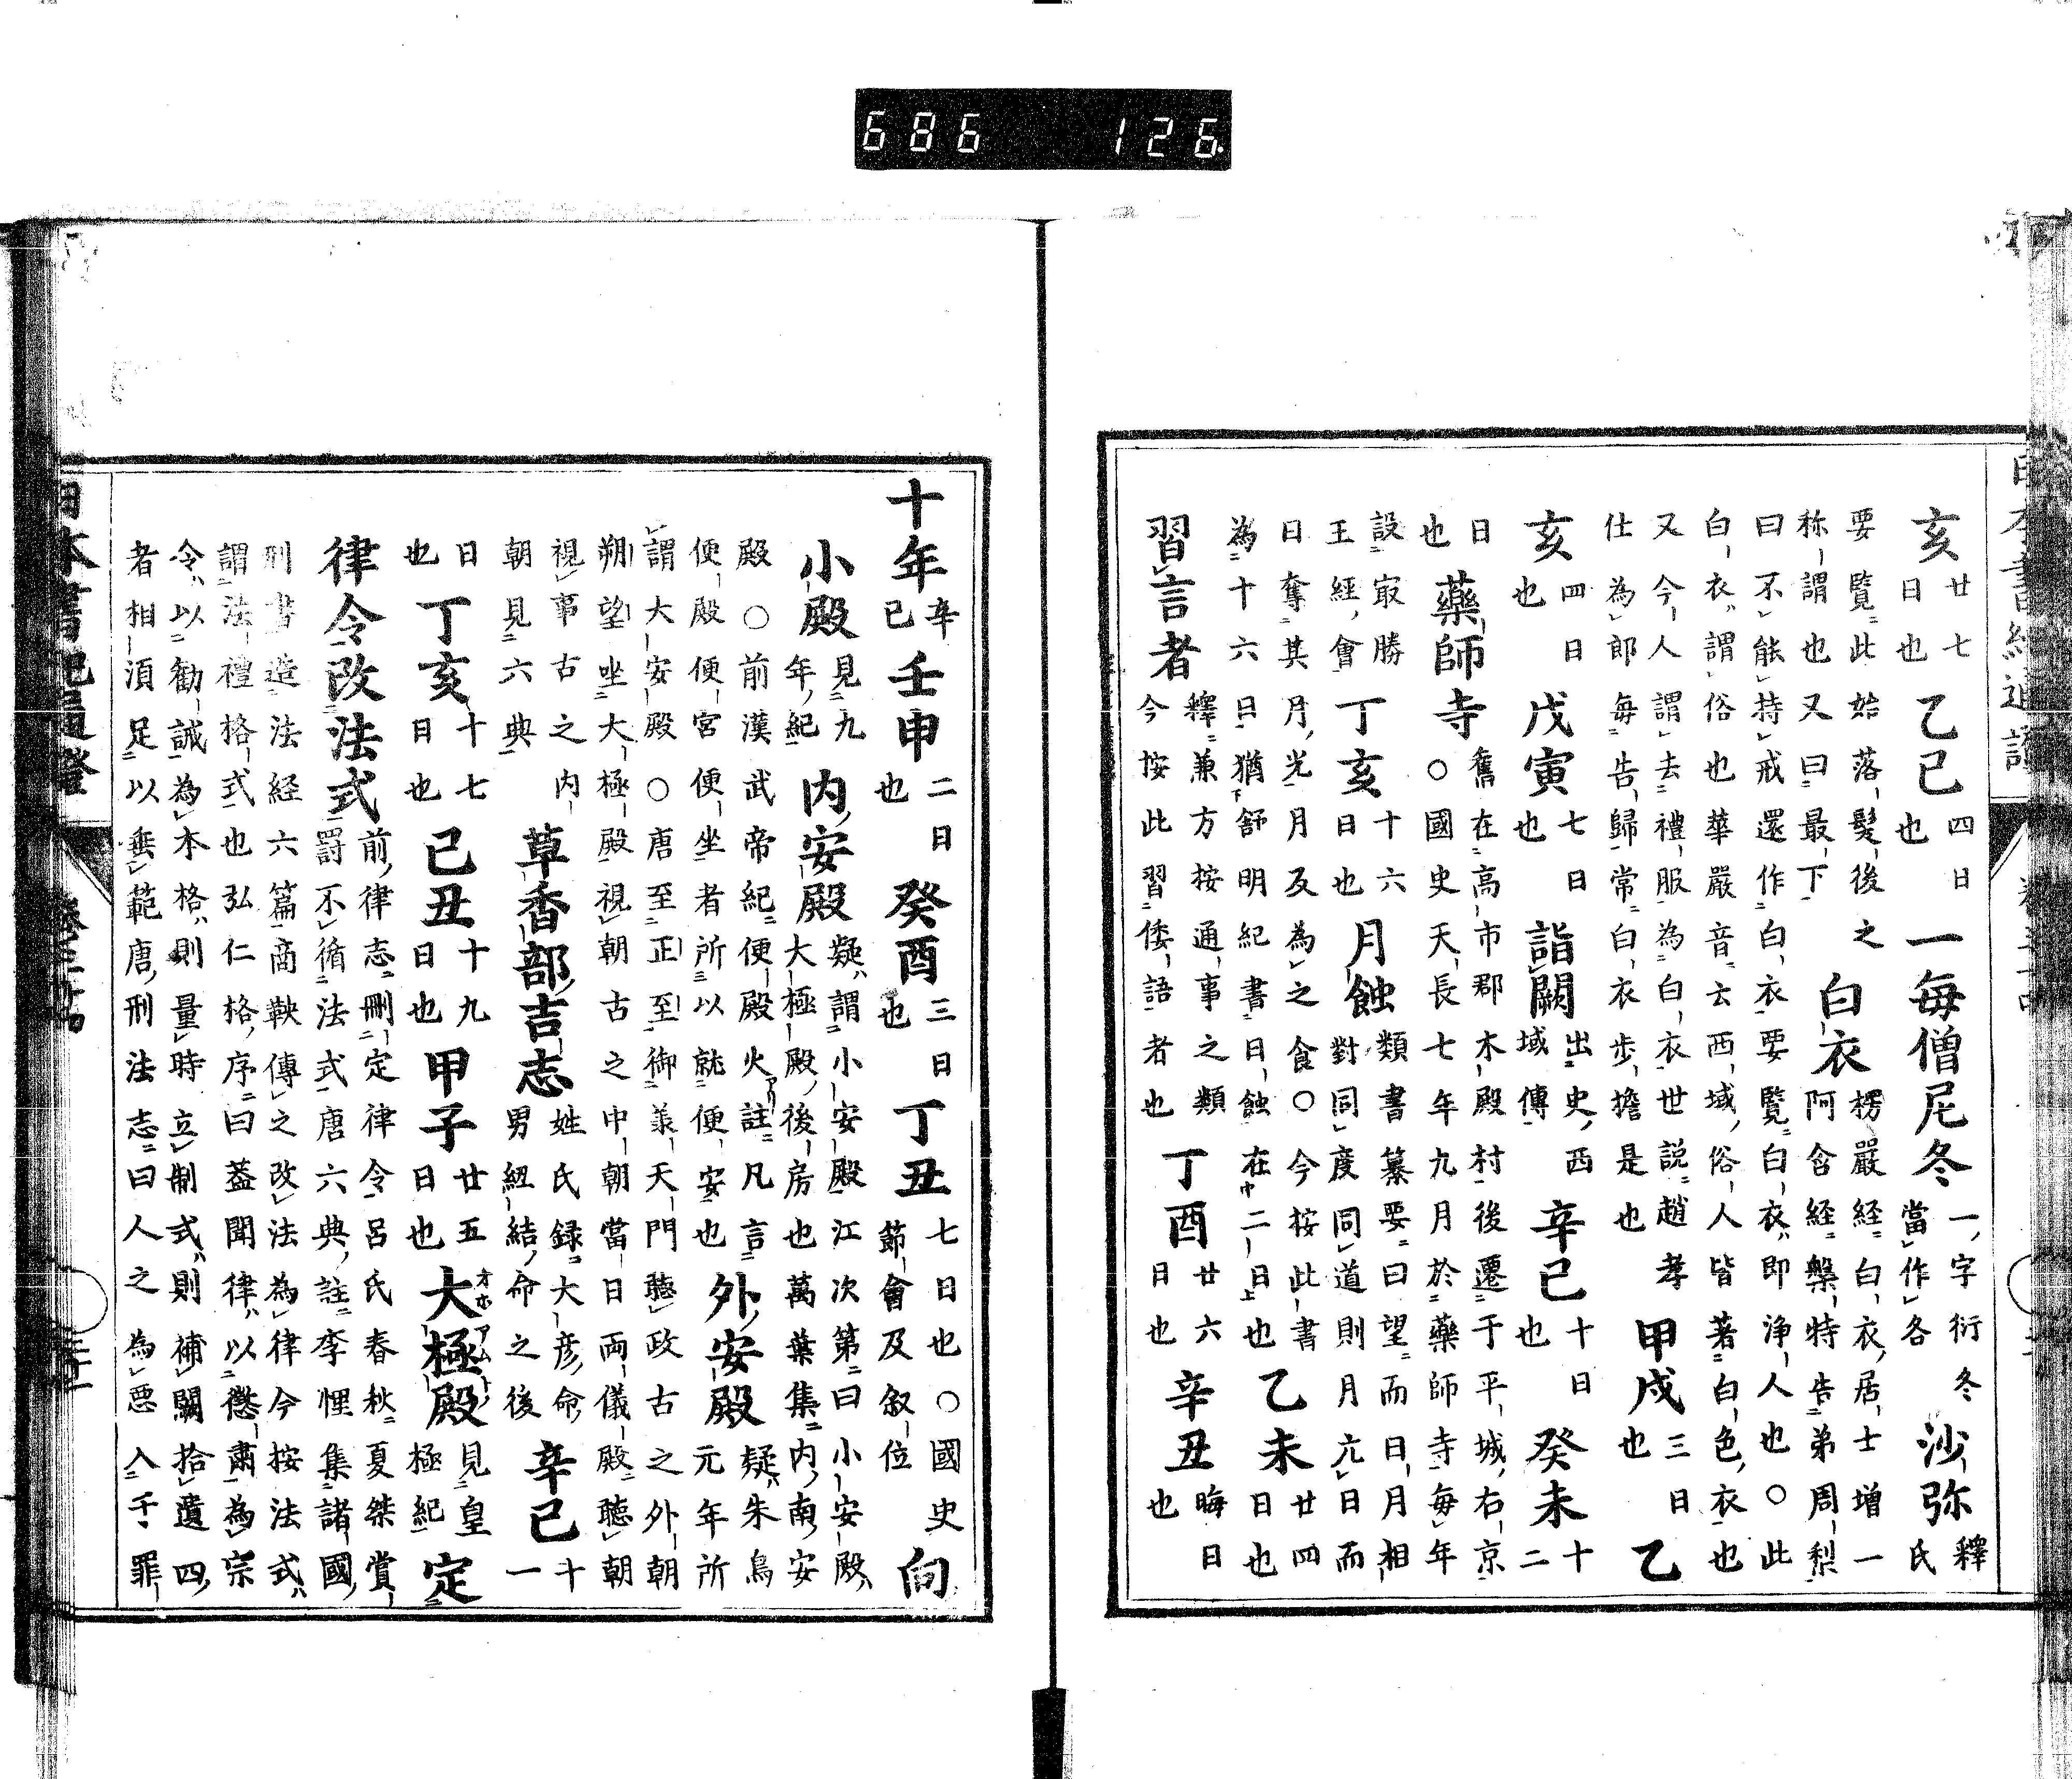 亥廿七日也乙巳四日也一毎僧尼冬一字衍冬當作各沙弥釋氏
要覧此始落髮後之称謂也又曰最下白衣楞嚴經白衣居士增一阿含経槃特告弟周梨
曰不能持戒還作白衣要覧白衣即浄人也○此白衣謂俗也華嚴音云西域俗人皆著白色衣也
又今人謂去禮服為白衣世説趙孝仕為郎毎告歸常白衣步擔是也甲戌三日也乙
亥四日也戊寅七日也詣闕出史西域傳辛巳十日也癸未十二
日也藥師寺舊在高市郡木殿村後遷于平城右京○國史天長七年九月於藥師寺毎年
設㝡勝王經會丁亥十六日也月蝕類書纂要曰望而日月相對同度同道則月亢日而
日奪其月光月及為之食○今按此書為十六日猶舒明紀書日蝕在二日也乙未廿四日也
習言者釋兼方按通事之類今按此習倭語者也丁酉廿六日也辛丑晦日也
十年辛巳壬申二日也癸酉三日也丁丑七日也○國史節會及叙位向
小殿見九年紀内安殿疑謂小安殿江次第曰小安殿大極殿後房也萬葉集内南安
殿○前漢武帝紀便殿火註凡言便殿便宮便坐者所以就便安也外安殿疑朱鳥元年所
謂大安殿○唐至正至御義天門聽政古之外朝朔望坐大極殿視朝古之中朝當日両儀殿聽朝
視事古之内朝見六典草香部吉志姓氏録大彦命男紐結命之後辛巳十一
日也丁亥十七日也己丑十九日也甲子廿五日也大極殿オホアムトノ見皇極紀定
律令改法式前律志刪定律令呂氏春秋夏桀賞罸不循法式唐六典註李悝集諸國
刑書造法経六篇商鞅傳之改法為律今按法式謂法禮格式也弘仁格序曰蓋聞律以懲肅為宗
令以勸誡為本格則量時立制式則補闕拾遺四者相湏足以垂範唐刑法志曰人之為悪入千罪
日本書紀通證
686 126